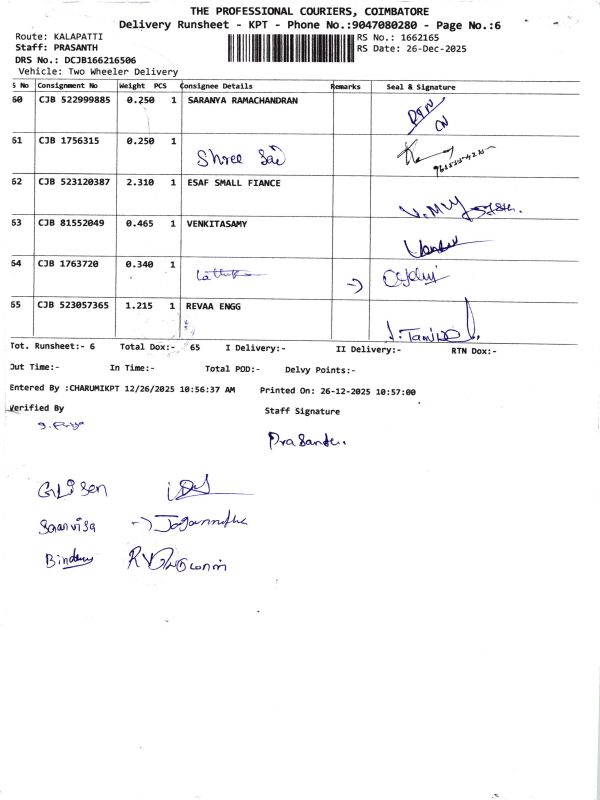 THE PROFESSIONAL COURIERS, COIMBATORE
Delivery Runsheet - KPT - Phone No.:9047080280 - Page No.:6
Route: KALAPATTI RS No.: 1662165
Staff: PRASANTH RS Date: 26-Dec-2025
DRS No.: DCJB166216506
Vehicle: Two Wheeler Delivery
S No Consignment No Weight PCS Consignee Details Remarks Seal & Signature
60 CJB 522999885 0.250 1 SARANYA RAMACHANDRAN
61 CJB 1756315 0.250 1
Shree Sai
62 CJB 523120387 2.310 1 ESAF SMALL FIANCE
63 CJB 81552049 0.465 1 VENKITASAMY
64 CJB 1763720 0.340 1
65 CJB 523057365 1.215 1 REVAA ENGG
Tot. Runsheet:- 6 Total Dox:- 65 I Delivery:- II Delivery:- RTN Dox:-
Out Time:- In Time:- Total POD:- Delvy Points:-
Entered By :CHARUMIKPT 12/26/2025 10:56:37 AM Printed On: 26-12-2025 10:57:00
Verified By Staff Signature